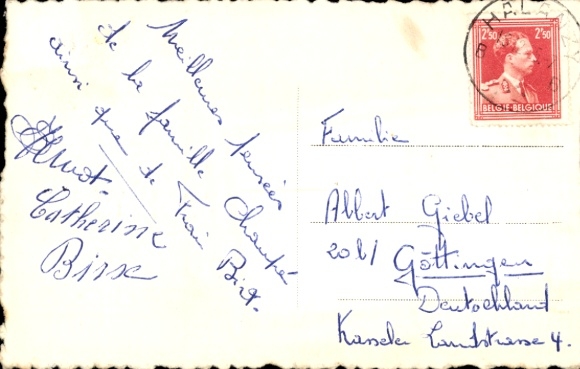 Meilleures pensées
de la famille Champé
ainsi que de Frau Birx.
Catherine
Birx
HALANZY
2F50 2F50
BELGIE-BELGIQUE
Familie
Albert Giebel
20b/ Göttingen
Deutschland
Kasseler Landstrasse 4.